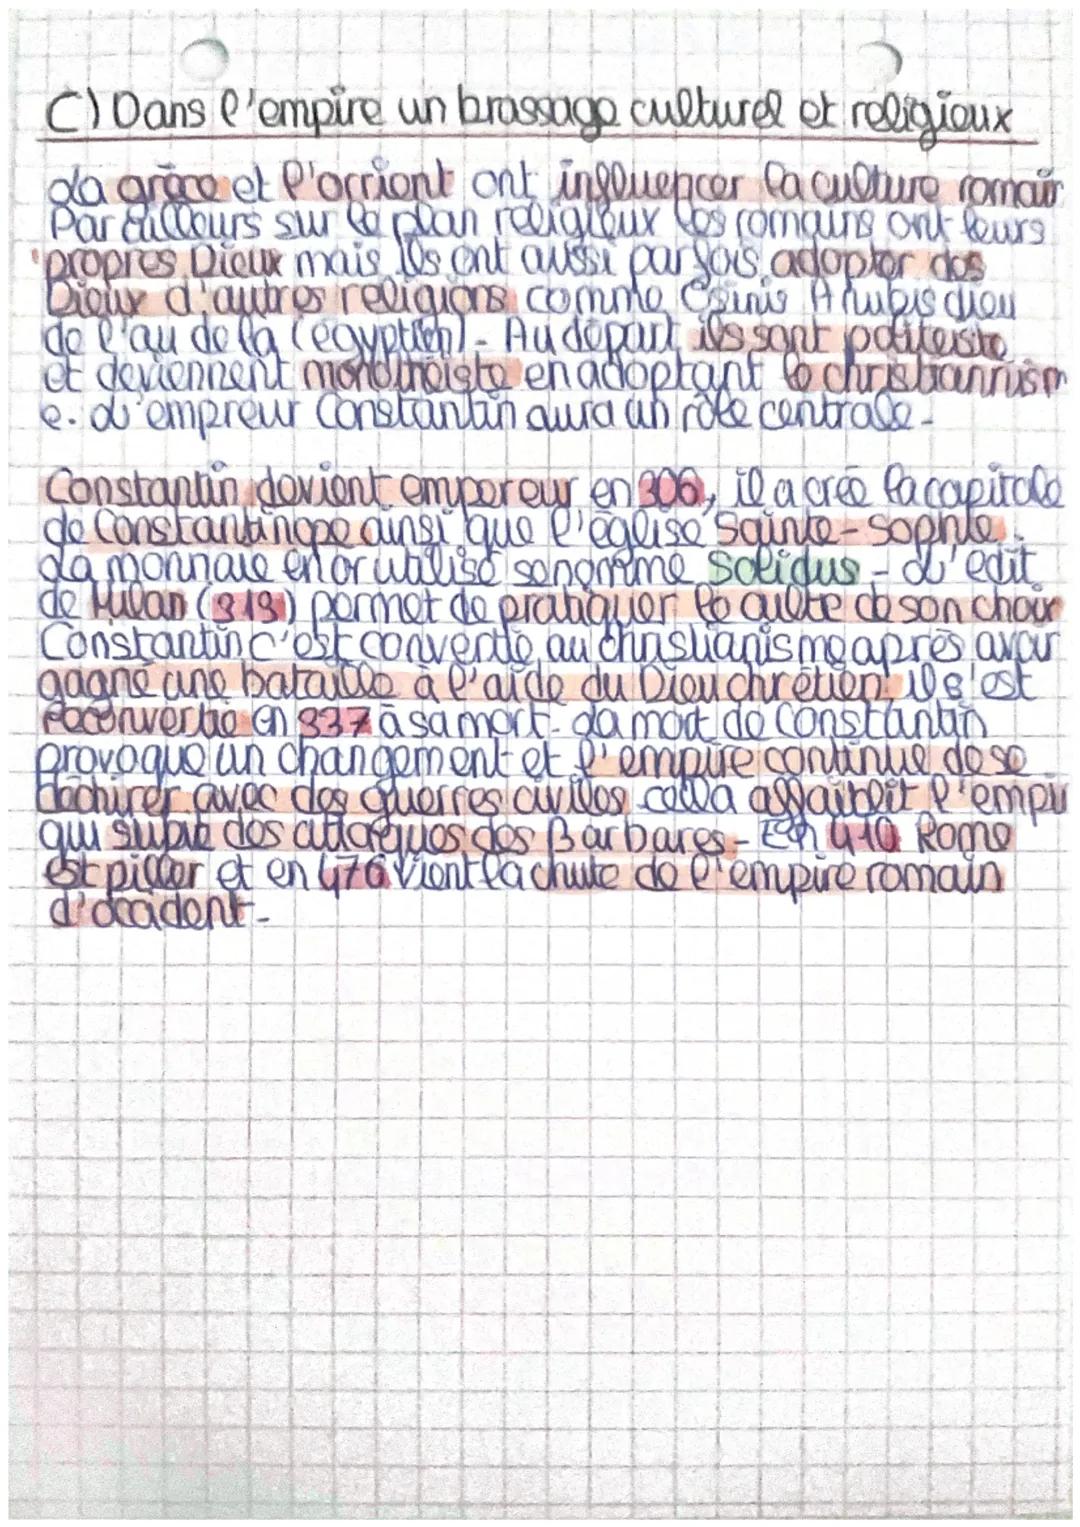 C) Dans l'empire un brassage culturel et religieux
La grâce et l'orrient ont influencer la culture romain
Par ailleurs sur le plan religieux les romains ont leurs
propres Dieux mais ils ont aussi parfois adopter des
Dieux d'autres religions comme Anubis dieu
de l'au de la (egyptien). Au départ ils sont politeiste
et deviennent monothéiste en adoptant le christiannism
e. L'empreur Constantin aura un rôle centrale.
Constantin devient empereur en 306, il a crée la capitale
de Constantinope ainsi que l'église Sainte-Sophie.
La monnaie en or utilisé se nomme Solidus. L'edit
de Milan (313) permet de pratiquer le culte de son choix
Constantin c'est convertie au christianisme après avoir
gagné une bataille à l'aide du Dieu chrétien. Il s'est
reconvertie en 337 à sa mort. La mort de Constantin
provoque un changement et l'empire continue de se
déchirer avec des guerres civiles cella affaiblit l'empir
qui subit des attaques des Barbares. En 410 Rome
est piller et en 476 vient la chute de l'empire romain
d'occident.